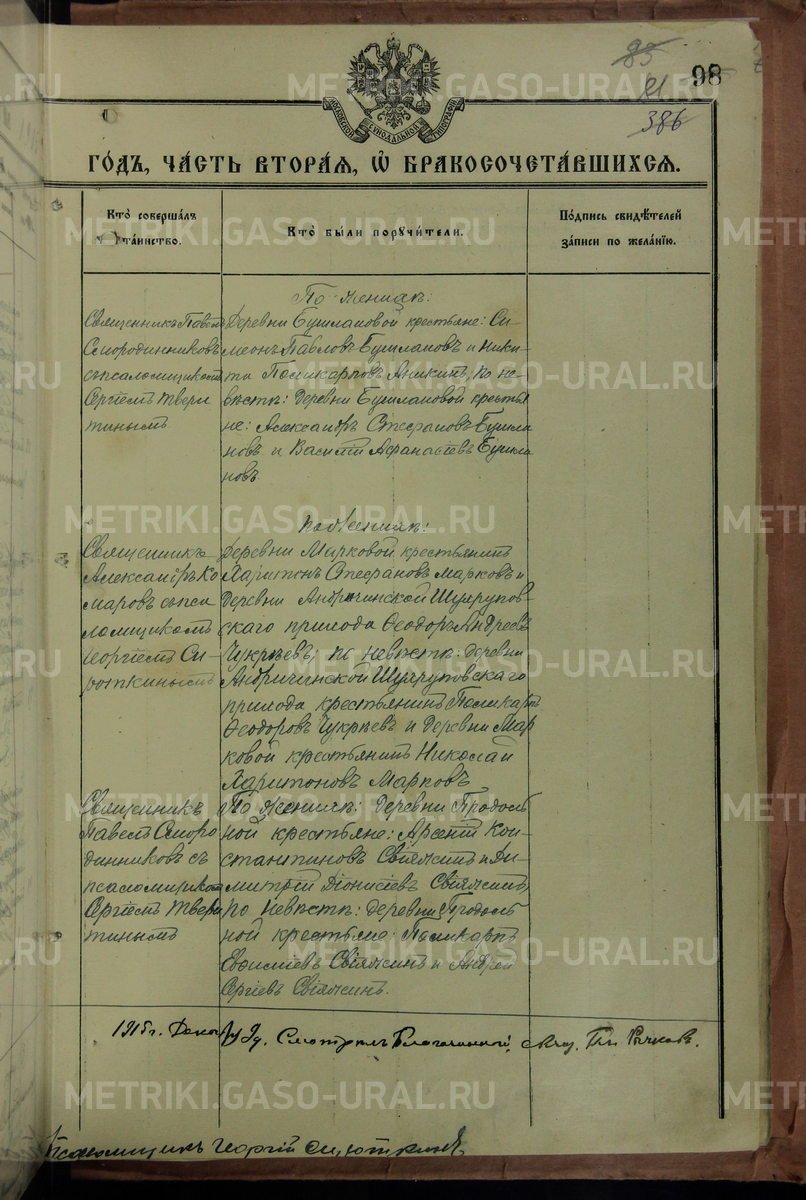 85
98
386
МОСКОВСКОЙ СѴНОДАЛЬНОЙ ТИПОГРАФІИ
ГО́ДЪ, ЧА́СТЬ ВТОРА́Я, Ѡ҆ БРАКОСОЧЕТА́ВШИХСЯ.
Кто̀ соверша́лъ та́инство.
Кто̀ бы́ли порꙋчи́тели.
По́дпись свидѣ́телей за́писи по жела́нїю.
Священникъ Павелъ
Смородинниковъ
съ псаломщикомъ
Сергіемъ Твери
тинымъ
По женихѣ:
Деревни Бушлановой крестьяне: Си-
меонъ Павловъ Бушлановъ и Ники-
та Поликарповъ Аникинъ, по не-
вѣстѣ: деревни Бушлановой крестья
не: Александръ Стефановъ Бушла
новъ и Василій Афанасіевъ Бушла
новъ
Священникъ
Александръ Ко
маровъ съ пса
ломщикомъ
Георгіемъ Си-
роткинымъ
По женихѣ:
Деревни Марковой крестьянинъ
Харитонъ Стефановъ Марковъ и
деревни
прихода Ѳеодоръ Андреевъ
Чукрѣевъ, по невѣстѣ: деревни
прихода крестьянинъ Поликарпъ
Ѳеодоровъ Чукрѣевъ и деревни Мар
ковой крестьянинъ Николай
Харитоновъ Марковъ
Священникъ
Павелъ Сморо
динниковъ съ
псаломщикомъ
Сергіемъ Твери
тинымъ
По женихѣ: деревни Продоль
ной крестьяне: Арсеній Кон-
стантиновъ Свіяжинъ и Ди-
митрій Діонисіевъ Свіяжинъ,
по невѣстѣ: деревни Продоль
ной крестьяне: Поликарпъ
Свіяжинъ и Андрей
Сергіевъ Свіяжинъ.
1915 г. Смотрѣлъ Благочинный, свящ. Рычковъ.
Псаломщикъ Георгій Сироткинъ.
METRIKI.GASO-URAL.RU